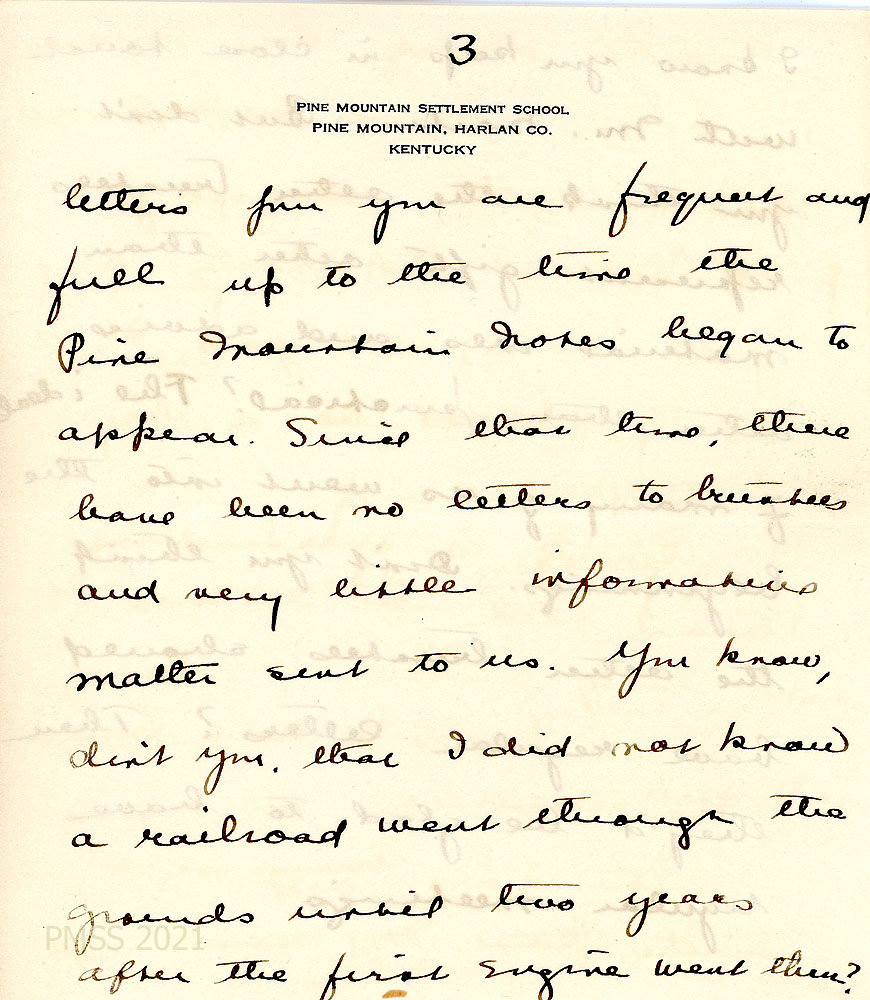 3
PINE MOUNTAIN SETTLEMENT SCHOOL
PINE MOUNTAIN, HARLAN CO.
KENTUCKY
letters from you are frequent and
full up to the time the
Pine Mountain Notes began to
appear. Since that time, there
have been no letters to trustees
and very little information
matter sent to us. You know,
don't you, that I did not know
a railroad went through the
grounds until two years
after the first engine went thru?
PMSS 2021